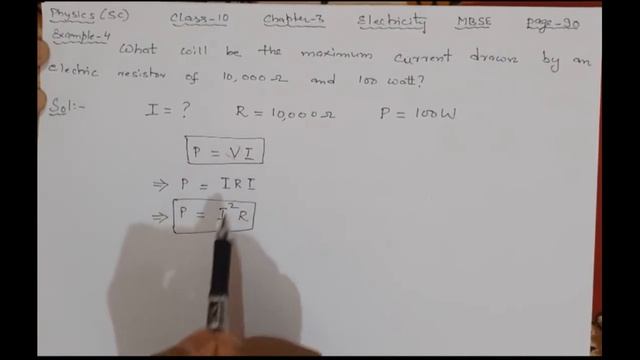 Physics (Sc) Class-10 Chapter-3 Electricity MBSE Page-90
Example-4
What will be the maximum current drawn by an
electric resistor of 10,000Ω and 100 watt?
Sol:- I = ? R = 10,000Ω P = 100W
P = VI
⇒ P = IRI
⇒ P = I²R